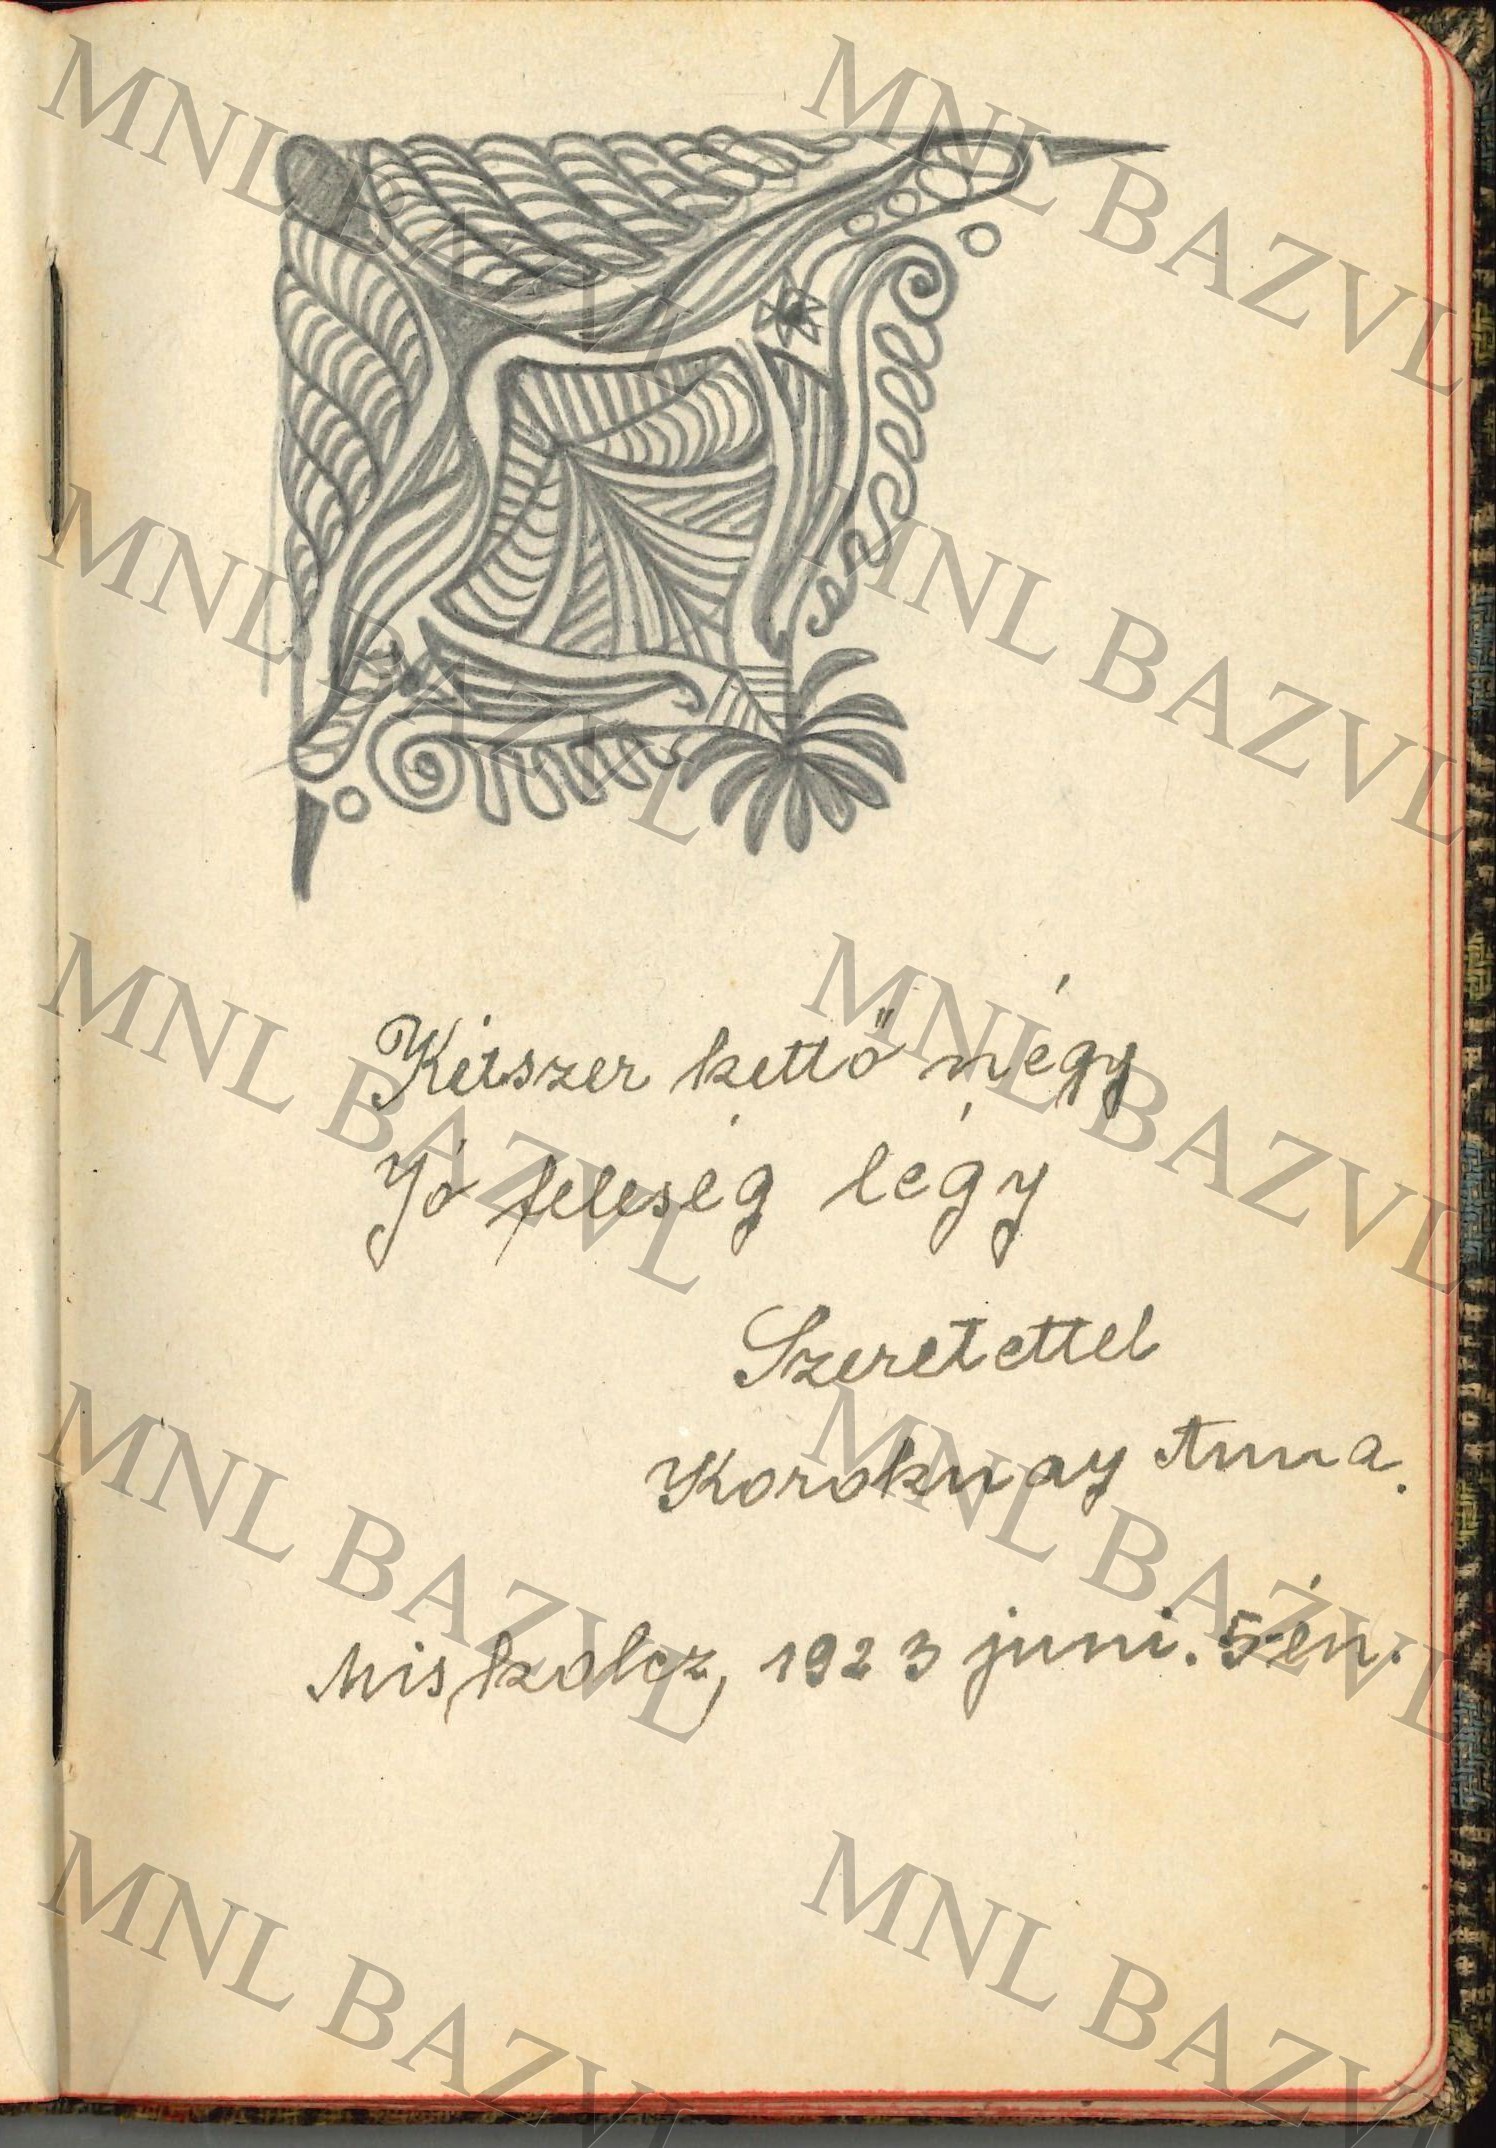 Kétszer kettő négy
Jó feleség légy
Szeretettel
Koroknay Anna.
Miskolcz, 1923 juni. 5-én.
MNL BAZVL
MNL BAZVL
MNL BAZVL
MNL BAZVL
MNL BAZVL
MNL BAZVL
MNL BAZVL
MNL BAZVL
MNL BAZVL
MNL BAZVL